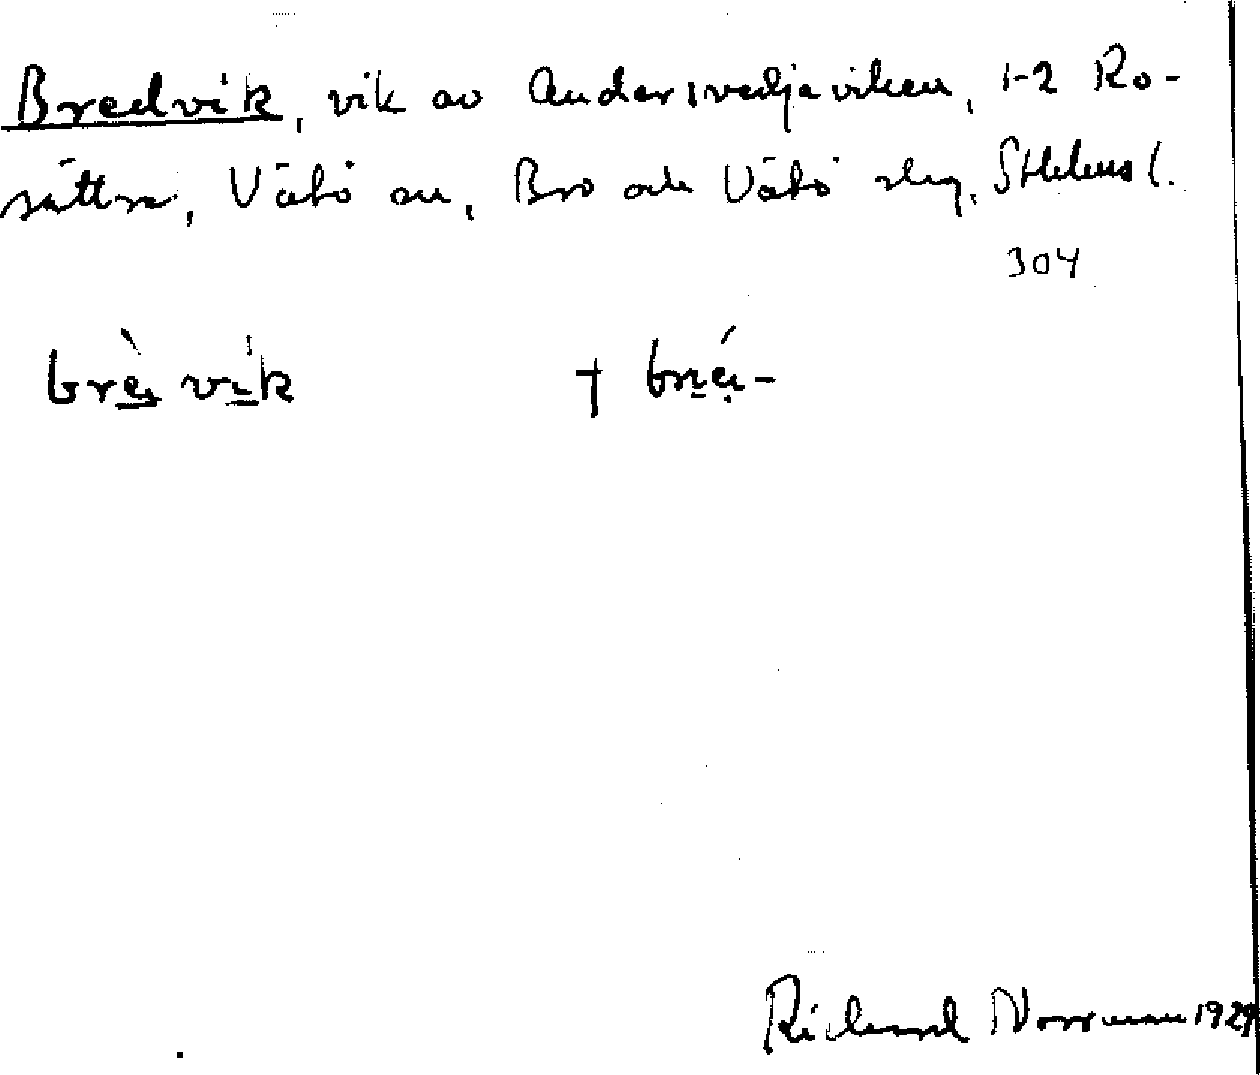 Bredvik, vik av Andersvedjaviken, 1-2 Ro-
sättra, Vätö sn, Bro och Vätö slg, Sthlms l.
304
brè̱ vi̱k † bré-
Richard Norrman 1929